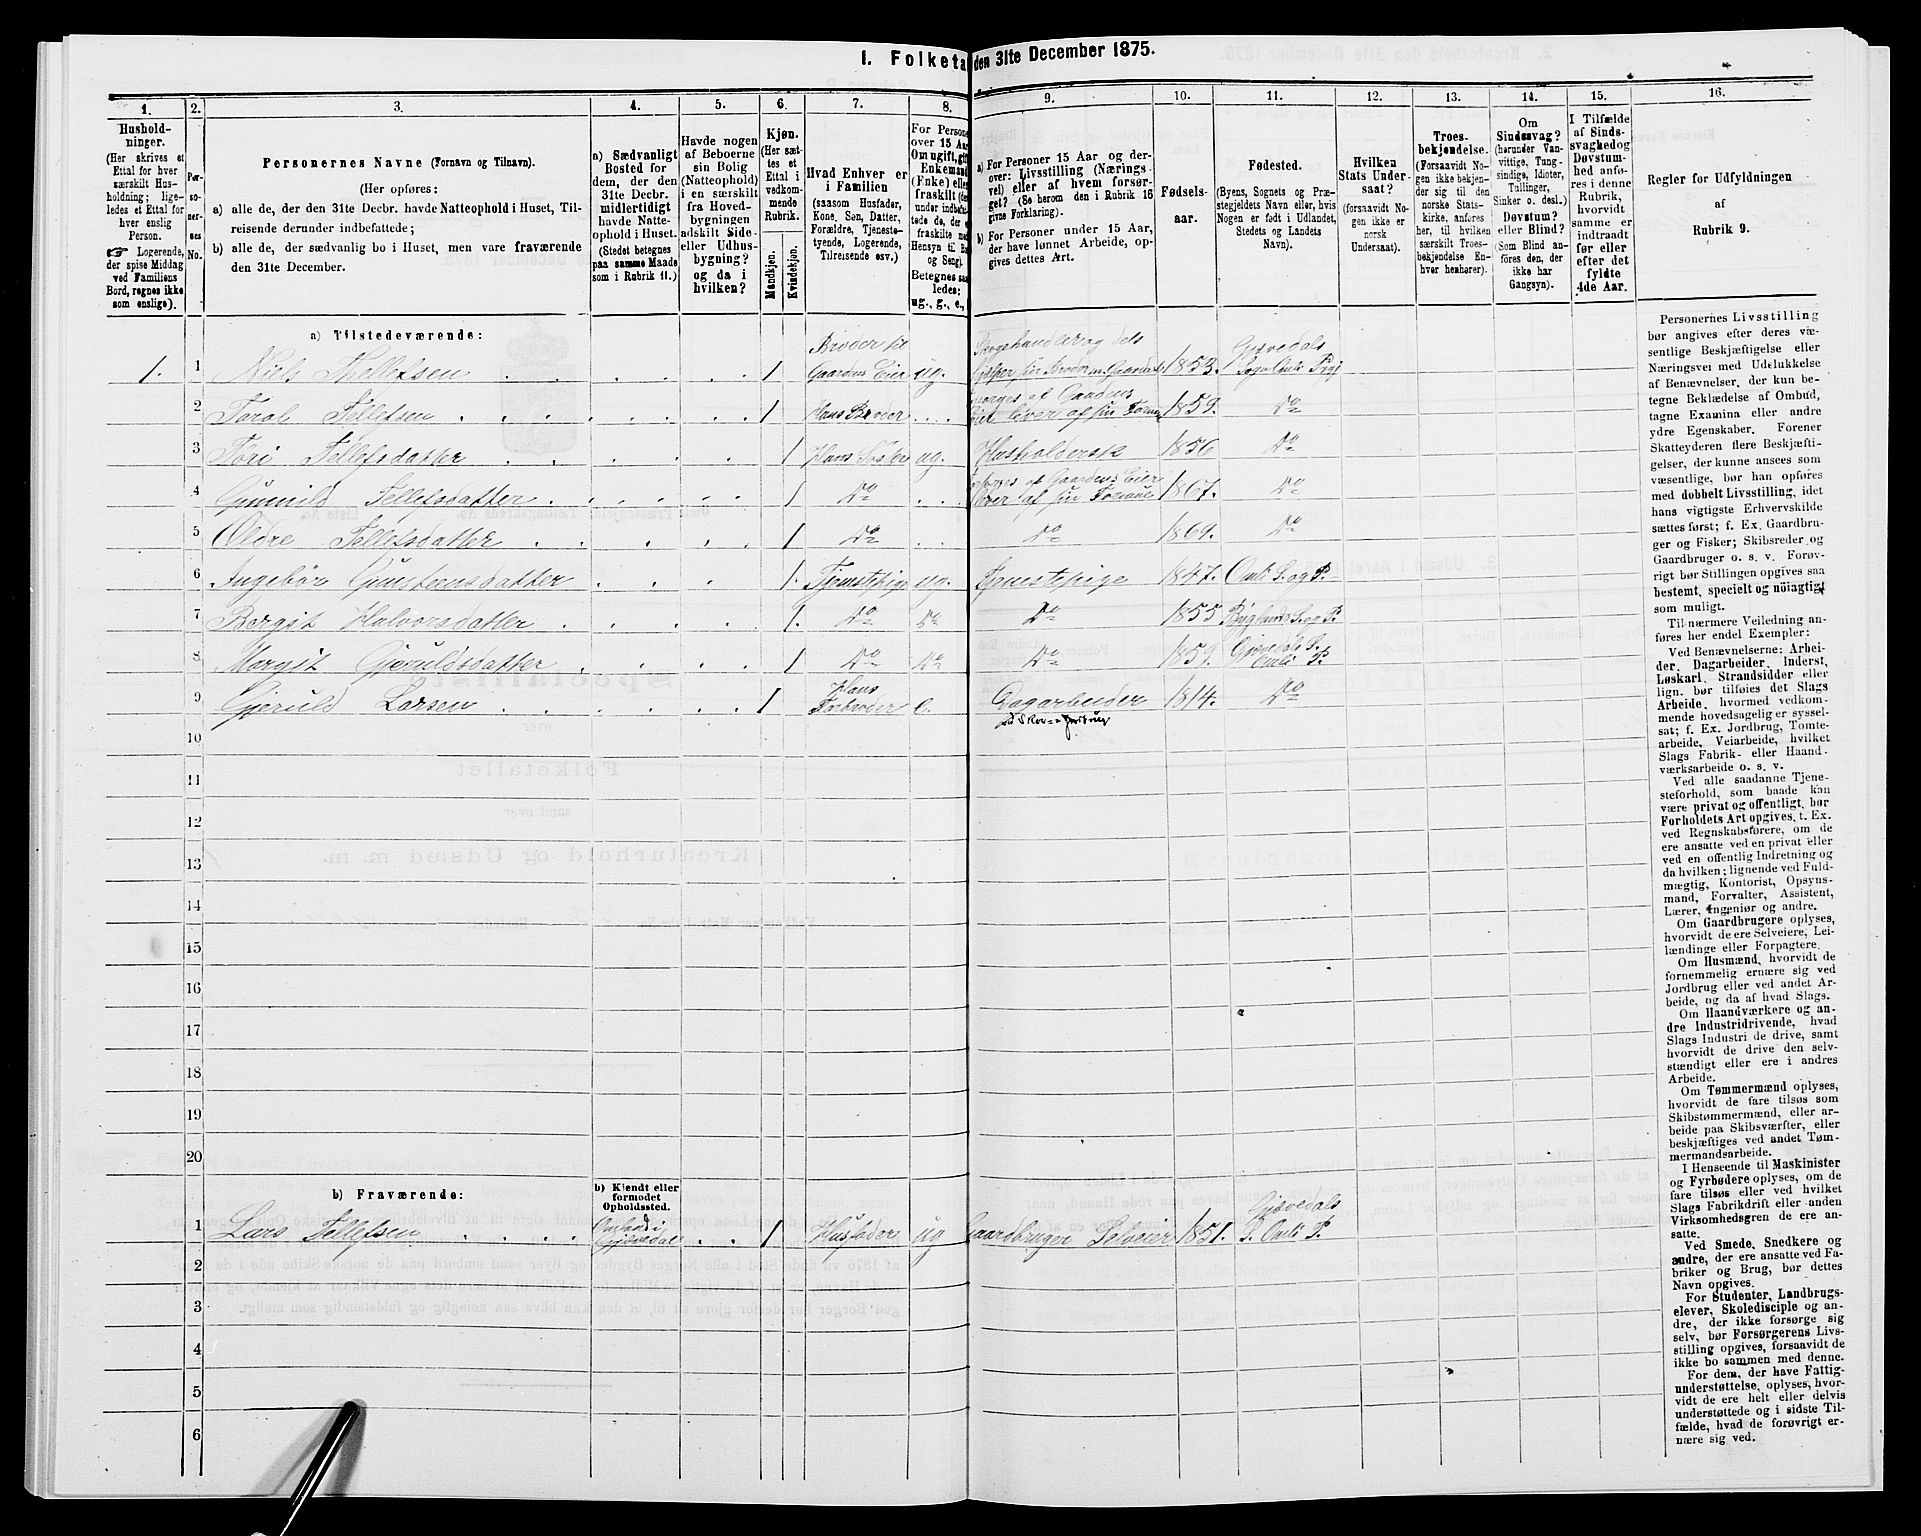 1. Folketa den 31te December 1875.
1. 2. 3. 4. 5. 6. 7. 8. 9. 10. 11. 12. 13. 14. 15. 16.
Hushold-
ninger.
(Her skrives et
Ettal for hver
særskilt Hus-
holdning; lige-
ledes et Ettal for
hver enslig
Person.
☞ Logerende,
der spise Middag
ved Familiens
Bord, regnes ikke
som enslige).
Per-
so-
ner-
nes
No.
Personernes Navne (Fornavn og Tilnavn).
(Her opføres:
a) alle de, der den 31te Decbr. havde Natteophold i Huset, Til-
reisende derunder indbefattede;
b) alle de, der sædvanlig bo i Huset, men vare fraværende
den 31te December.
a) Sædvanligt
Bosted for
dem, der den
31te Decbr.
midlertidigt
havde Natte-
ophold i Huset.
(Stedet betegnes
paa samme Maade
som i Rubrik 11.)
Havde nogen
af Beboerne
sin Bolig
(Natteophold)
i en særskilt
fra Hoved-
bygningen
adskilt Side-
eller Udhus-
bygning?
og da i
hvilken?
Kjøn.
(Her sæt-
tes et
Ettal i
vedkom-
mende
Rubrik.
Mandkjøn.
Kvindekjøn.
Hvad Enhver er
i Familien
(saasom Husfader,
Kone, Søn, Datter,
Forældre, Tjeneste-
tyende, Logerende,
Tilreisende osv.)
For Persone
over 15 Aar
Om ugift, gift
Enkemand
(Enke) elle
fraskilt (de
under indbefat-
tede de, der
fraskilte med
Hensyn til B
og Seng).
Betegnes saa
ledes:
ug., g., e.,
a) For Personer 15 Aar og der-
over: Livsstilling (Nærings-
vei) eller af hvem forsør-
get? (Se herom den i Rubrik 16
givne Forklaring).
b) For Personer under 15 Aar,
der have lønnet Arbeide, op-
gives dettes Art.
Fødsels-
aar.
Fødested.
(Byens, Sognets og Præ-
stegjeldets Navn eller, hvis
Nogen er født i Udlandet,
Stedets og Landets
Navn).
Hvilken
Stats Under-
saat?
(forsaavidt No-
gen ikke er
norsk
Undersaat).
Troes-
bekjendelse.
(Forsaavidt No-
gen ikke bekjen-
der sig til den
norske Stats-
kirke, anføres
her, til hvilken
særskilt Troes-
bekjendelse En-
hver henhører).
Om
Sindssvag?
(herunder Van-
vittige, Tung-
sindige, Idioter,
Tullinger,
Sinker o. desl.)
Døvstum?
eller Blind?
(Som Blind an-
føres den, der
ikke har
Gangsyn).
I Tilfælde
af Sinds-
svaghed og
Døvstum-
hed anfø-
res i denne
Rubrik,
hvorvidt
samme er
indtraadt
før eller
efter det
fyldte
4de Aar.
Regler for Udfyldningen
af
Rubrik 9.
a) Tilstedeværende:
1. 1 Niels Thellefsen 1 Broder til Gaardens Eier ug. 1853. Gjøvedals Sogn Omli Prgj
2 Toral Tellefsen 1 Hans Broder 1859. Do
3 Tori Tellefsdatter 1 Hans Søster ug. Husholderske 1856 Do
4 Gunnild Tellefsdatter 1 Do Forsørges af Gaardens Eier 1867. Do
5 Oldre Tellefsdatter 1 Do Do 1869. Do
6 Ingebør Gunsteensdatter 1. Tjenestepige ug. Tjenestepige 1847. Omli S. og P.
7 Bergit Halvorsdatter 1. Do Do Do 1855 Byglands S. og P.
8 Margit Gjeruldsdatter 1 Do Do Do 1859. Gjøvedals S. Omli P.
9 Gjeruld Larsen 1 Hans Farbroder e. Dagarbeider 1814. Do
10
11
12
13
14
15
16
17
18
19
20
b) Fraværende:
b) Kjendt eller
formodet
Opholdssted.
1 Lars Tellefsen Gjøvedal 1 Husfader ug Gaardbruger Selveier 1851. Gjøvedals S. Omli P.
2
3
4
5
6
Personernes Livsstilling
bør angives efter deres væ-
sentlige Beskjæftigelse eller
Næringsvei med Udelukkelse
af Benævnelser, der kun be-
tegne Beklædelse af Ombud,
tagne Examina eller andre
ydre Egenskaber. Forener
Skatteyderen flere Beskjæfti-
gelser, der kunne ansees som
væsentlige, bør han opføres
med dobbelt Livsstilling, idet
hans vigtigste Erhvervskilde
sættes først; f. Ex. Gaardbru-
ger og Fisker; Skibsreder og
Gaardbruger o. s. v. Forøv-
rigt bør Stillingen opgives saa
bestemt, specielt og nöiagtigt
som muligt.
Til nærmere Veiledning an-
føres her endel Exempler:
Ved Benævnelserne: Arbei-
der, Dagarbeider, Inderst,
Løskarl, Strandsidder eller
lign. bør tilføies det Slags
Arbeide, hvormed vedkom-
mende hovedsagelig er syssel-
sat; f. Ex. Jordbrug, Tomte-
arbeide, Veiarbeide, hvilket
Slags Fabrik- eller Haand-
værksarbeide o. s. v.
Ved alle saadanne Tjene-
steforhold, som baade kan
være privat og offentligt, bør
Forholdets Art opgives, t. Ex.
ved Regnskabsførere, om de
ere ansatte ved en privat eller
ved en offentlig Indretning og
da hvilken; lignende ved Fuld-
mægtig, Kontorist, Opsyns-
mand, Forvalter, Assistent,
Lærer, Ingeniør og andre.
Om Gaardbrugere oplyses,
hvorvidt de ere Selveiere, Lei-
lændinge eller Forpagtere.
Om Husmænd, hvorvidt de
fornemmelig ernære sig ved
Jordbrug eller ved andet Ar-
beide, og da af hvad Slags.
Om Haandværkere og an-
dre Industridrivende, hvad
Slags Industri de drive, samt
hvorvidt de drive den selv-
stændigt eller ere i andres
Arbeide.
Om Tømmermænd oplyses,
hvorvidt de fare tilsøs som
Skibstømmermænd, eller ar-
beide paa Skibsværfter, eller
beskjæftiges ved andet Tøm-
mermandsarbeide.
I Henseende til Maskinister
og Fyrbødere oplyses, om de
fare tilsøs eller ved hvilket
Slags Fabrikdrift eller anden
Virksomhedsgren de ere an-
satte.
Ved Smede, Snedkere og
andre, der ere ansatte ved Fa-
briker og Brug, bør dettes
Navn opgives.
For Studenter, Landbrugs-
elever, Skoledisciple og an-
dre, der ikke forsørge sig
selv, bør Forsørgerens Livs-
stilling opgives, forsaavidt de
ikke bo sammen med denne.
For dem, der have Fattig-
understøttelse, oplyses, hvor-
vidt de ere helt eller delvis
understøttede og i sidste Til-
fælde, hvad de forøvrigt er-
nære sig ved.